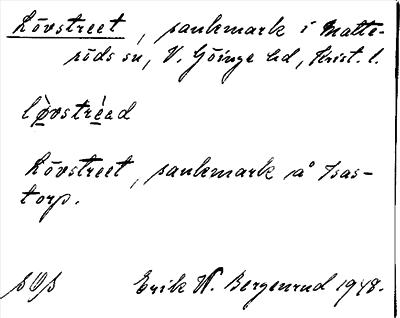 Lövstreet, sankmark i Matte-
röds sn, V. Göinge hd, Krist. l.
lø̀vstrèad
Lövstreet, sankmark på Isas-
torp.
Erik W. Bergenrud 1948.